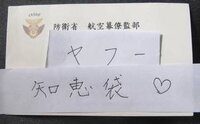 防衛省 航空幕僚監部
ヤフー
知恵袋♡